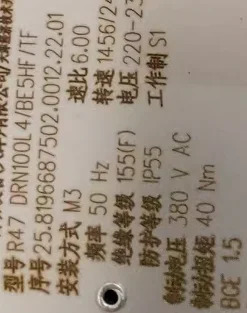 型号 R47 DRN100L4/BE5HF/TF
序号 25.8196687502.0012.22.01
安装方式 M3
速比 6.00
频率 50 Hz
转速 1456/24
绝缘等级 155(F)
电压 220-23
防护等级 IP55
工作制 S1
制动电压 380 V AC
制动扭矩 40 Nm
BGE 1.5